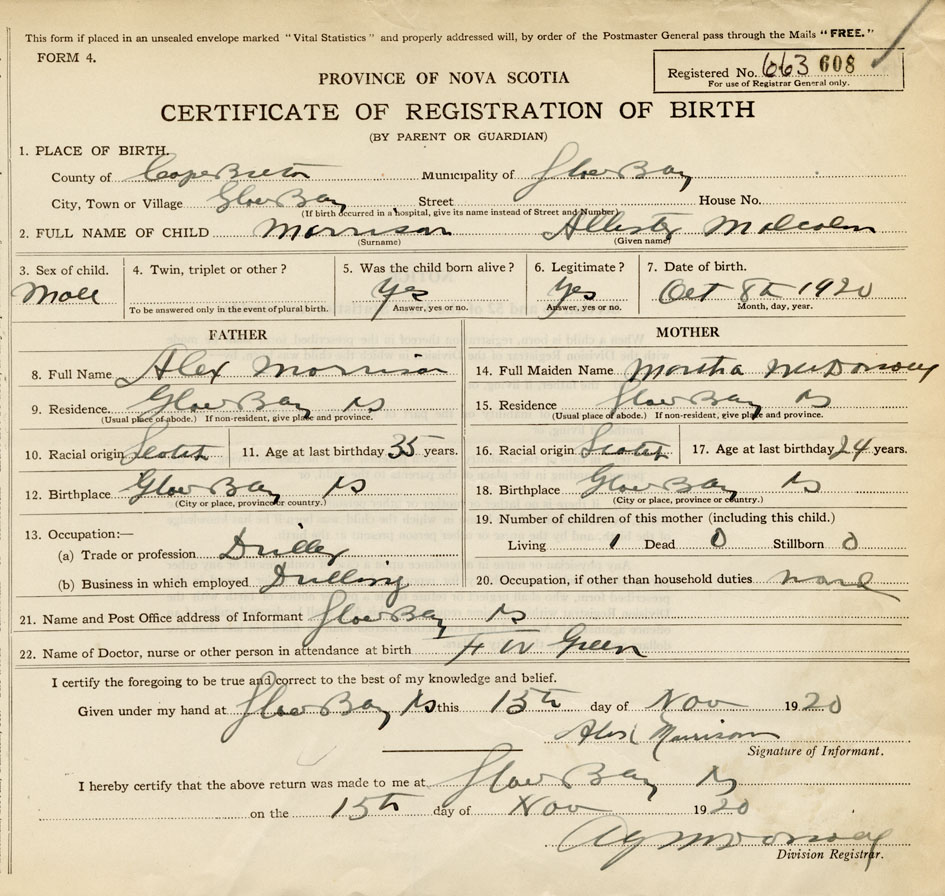 This form if placed in an unsealed envelope marked "Vital Statistics" and properly addressed will, by order of the Postmaster General pass through the Mails "FREE."
FORM 4.
Registered No. 663 608
For use of Registrar General only.
PROVINCE OF NOVA SCOTIA
CERTIFICATE OF REGISTRATION OF BIRTH
(BY PARENT OR GUARDIAN)
1. PLACE OF BIRTH.
County of Cape Breton Municipality of Glace Bay
City, Town or Village Glace Bay Street House No.
(If birth occurred in a hospital, give its name instead of Street and Number)
2. FULL NAME OF CHILD Morrison Allister Malcolm
(Surname) (Given name)
3. Sex of child. 4. Twin, triplet or other? 5. Was the child born alive? 6. Legitimate? 7. Date of birth.
Male Yes Yes Oct 8th 1920
To be answered only in the event of plural birth. Answer, yes or no. Answer, yes or no. Month, day, year.
FATHER
8. Full Name Alex Morrison
9. Residence. Glace Bay NS
(Usual place of abode.) If non-resident, give place and province.
10. Racial origin Scotch 11. Age at last birthday 35 years.
12. Birthplace Glace Bay NS
(City or place, province or country.)
13. Occupation:—
(a) Trade or profession Driller
(b) Business in which employed Drilling
MOTHER
14. Full Maiden Name Martha
15. Residence Glace Bay NS
(Usual place of abode.) If non-resident, give place and province.
16. Racial origin Scotch 17. Age at last birthday 24 years.
18. Birthplace Glace Bay NS
(City or place, province or country.)
19. Number of children of this mother (including this child.)
Living 1 Dead 0 Stillborn 0
20. Occupation, if other than household duties. none
21. Name and Post Office address of Informant Glace Bay NS
22. Name of Doctor, nurse or other person in attendance at birth Green
I certify the foregoing to be true and correct to the best of my knowledge and belief.
Given under my hand at Glace Bay NS this 15th day of Nov 1920
Alex Morrison
Signature of Informant.
I hereby certify that the above return was made to me at Glace Bay NS
on the 15th day of Nov 1920
Division Registrar.